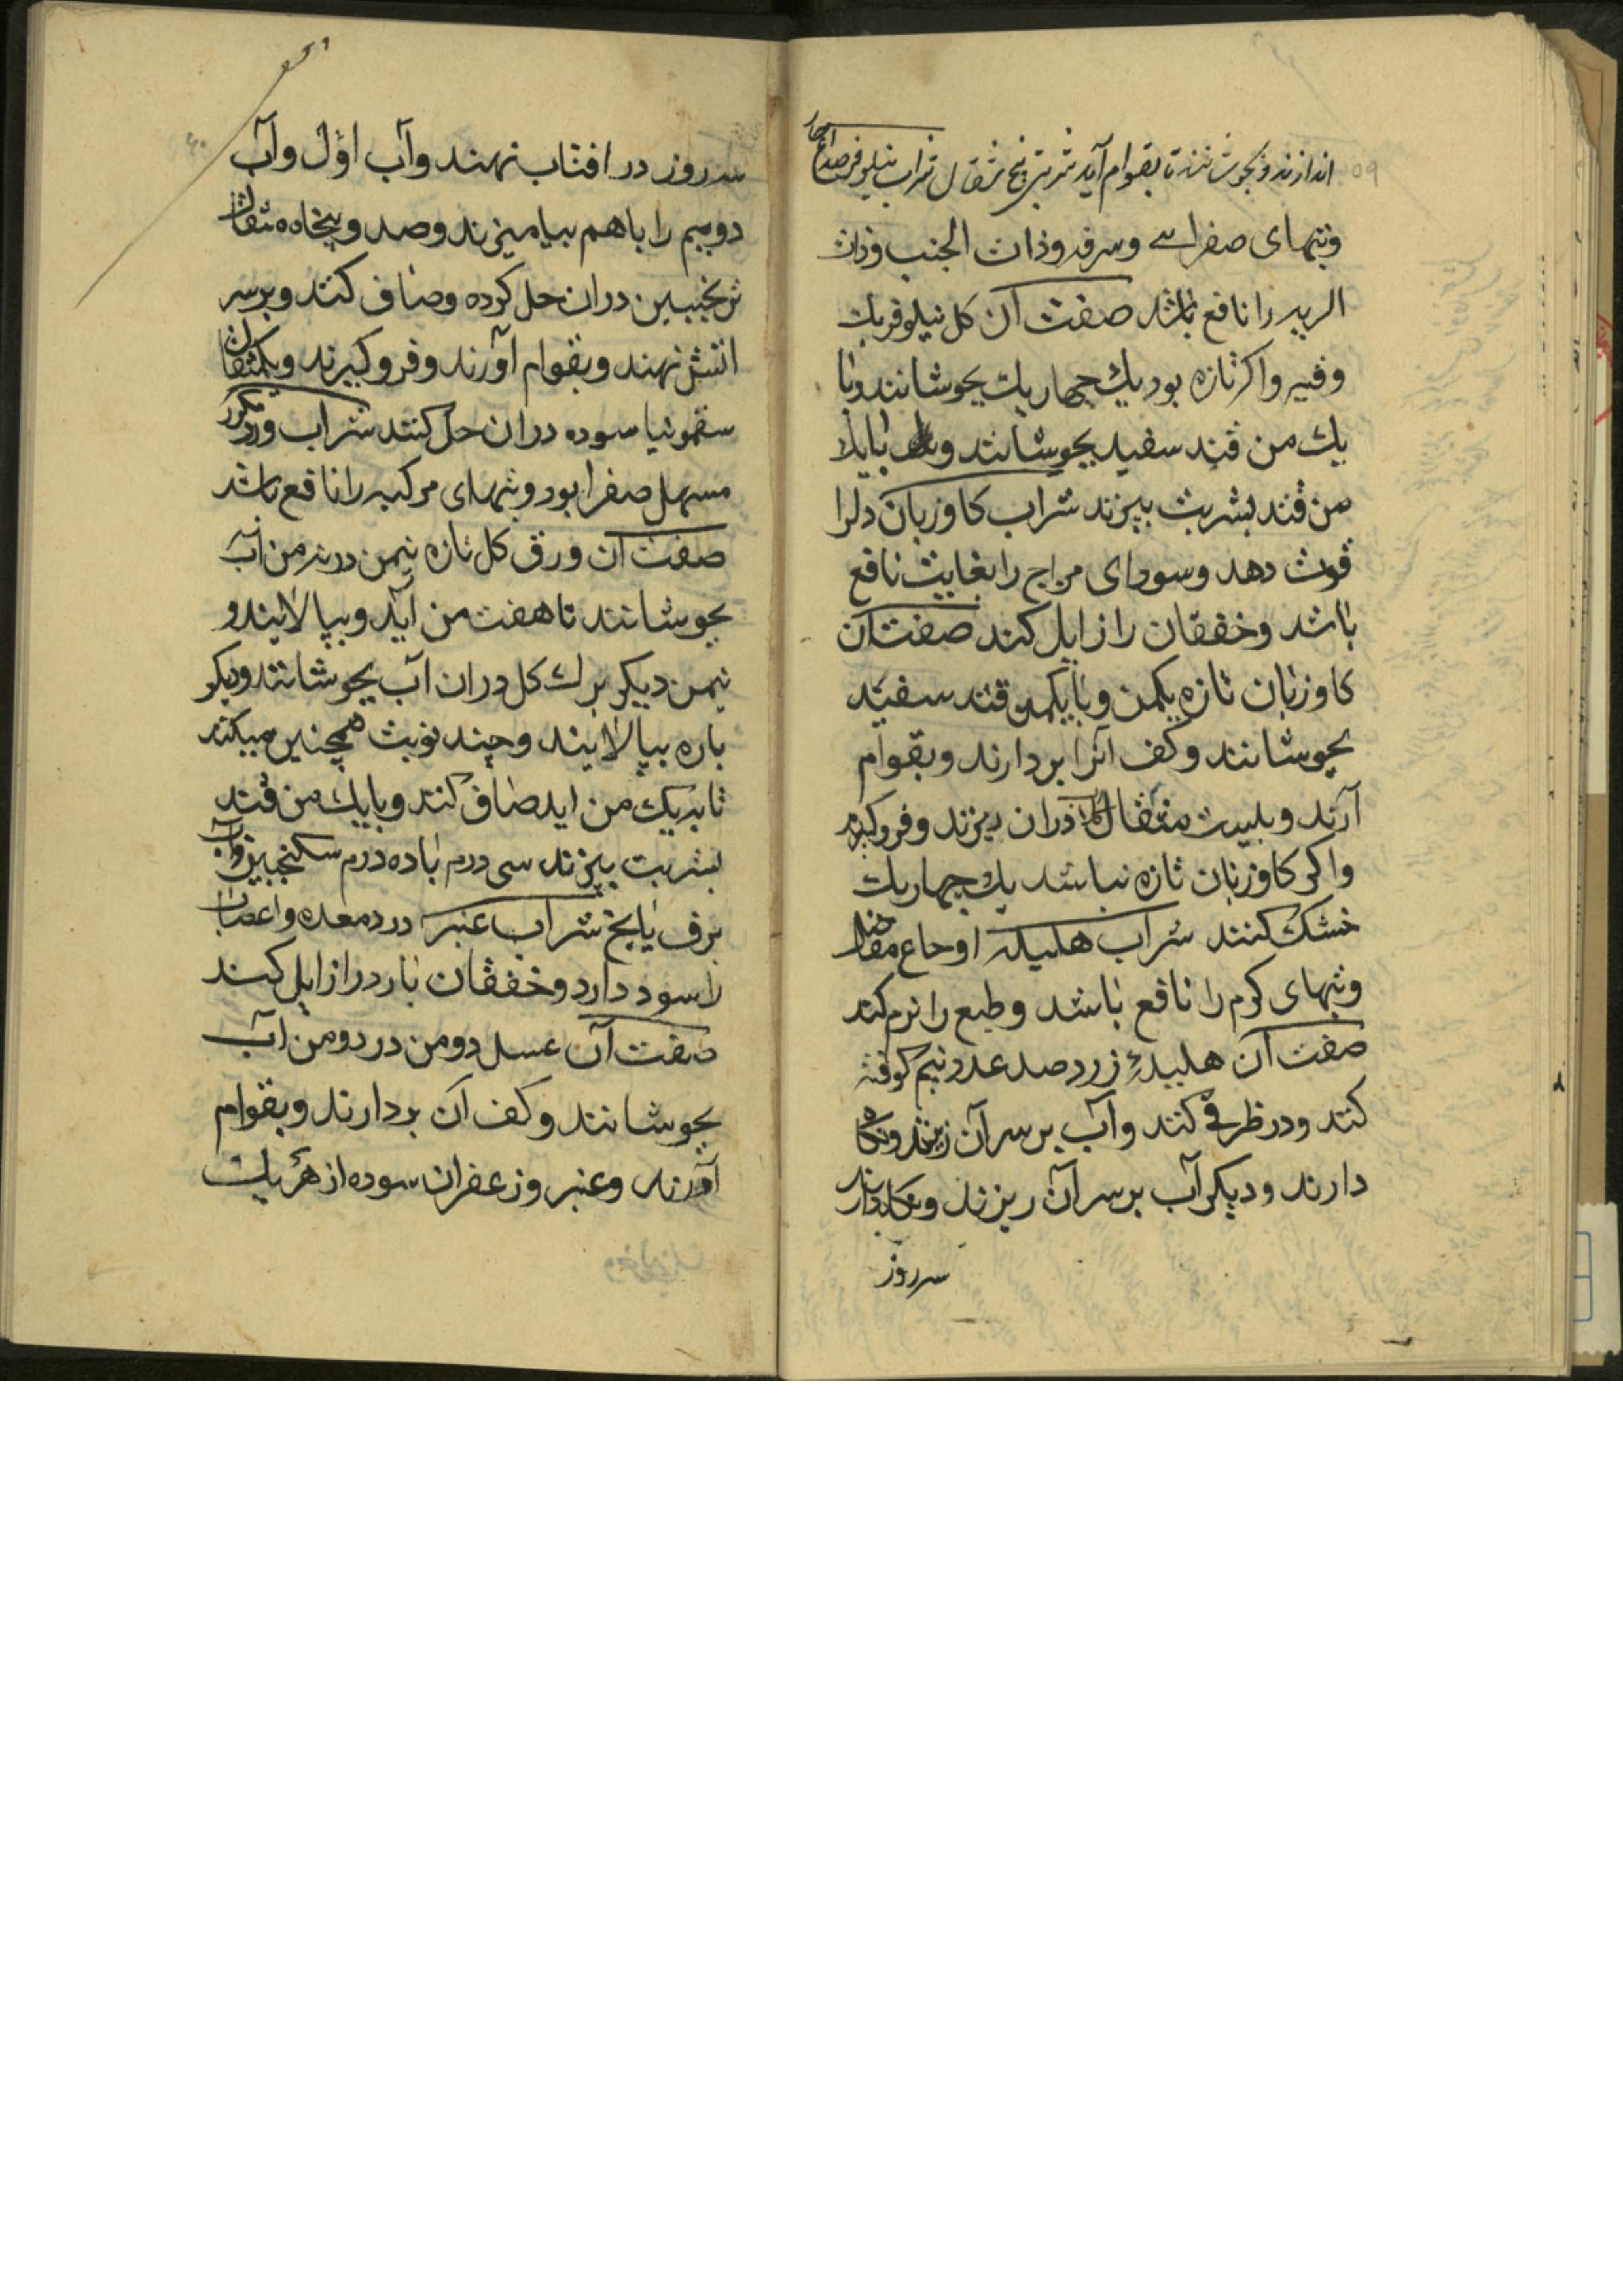 اندازند و بجوشانند تا بقوام آید شربتی پنج مثقال شراب نیلوفر صداع حار
وتبهای صفرایی وسرفه وذات الجنب وذات
الریه را نافع باشد صفت آن کل نیلوفر یک
وقیه واکر تازه بود یک چهاریک بجوشانند وبا
یک من قند سفید بجوشانند بایک
من قند بشربت بپزند شراب کاوزبان دلرا
قوت دهد وسودای مزاج را بغایت نافع
باشد وخفقان را زایل کند صفت آن
کاوزبان تازه یکمن وبایکمن قند سفید
بجوشانند وکف آنرا بردارند وبقوام
آرند وبیست مثقال دران ریزند وفروکیرند
واکر کاوزبان تازه نباشد یک چهاریک
خشک کنند شراب هلیله اوجاع مفاصل
وتبهای کرم را نافع باشد وطبع را نرم کند
صفت آن هلیلهٔ زرد صد عدد نیم کوفته
کنند ودر ظرفی کنند وآب بر سر آن ریزند ونکاه
دارند ودیکر آب بر سر آن ریزند ونکاه دارند
سه روز
سه روز در افتاب نهند وآب اول وآب
دویم را باهم بیامیزند وصد وپنجاه مثقال
ترنجبین دران حل کرده وصاف کنند وبرسر
اتش نهند وبقوام آورند وفروکیرند ویکمثقال
سقمونیا سوده دران حل کنند شراب ورد مکرر
مسهل صفرا بود وتبهای مرکبه را نافع باشد
صفت آن ورق کل تازه نیمن در نه من آب
بجوشانند تا هفت من آید وبپالایند و
نیمن دیکر برک کل دران آب بجوشانند ودیکر
باره بپالایند وچند نوبت همچنین میکنند
تا بدیک من آید صاف کنند وبایک من قند
بشربت بپزند سی درم باده درم سکنجبین وآب
برف یا یخ شراب عنبر درد معده واعصاب
را سود دارد وخفقان بارد را زایل کند
صفت آن عسل دومن در دومن آب
بجوشانند وکف آن بردارند وبقوام
آورند وعنبر وزعفران سوده از هر یک